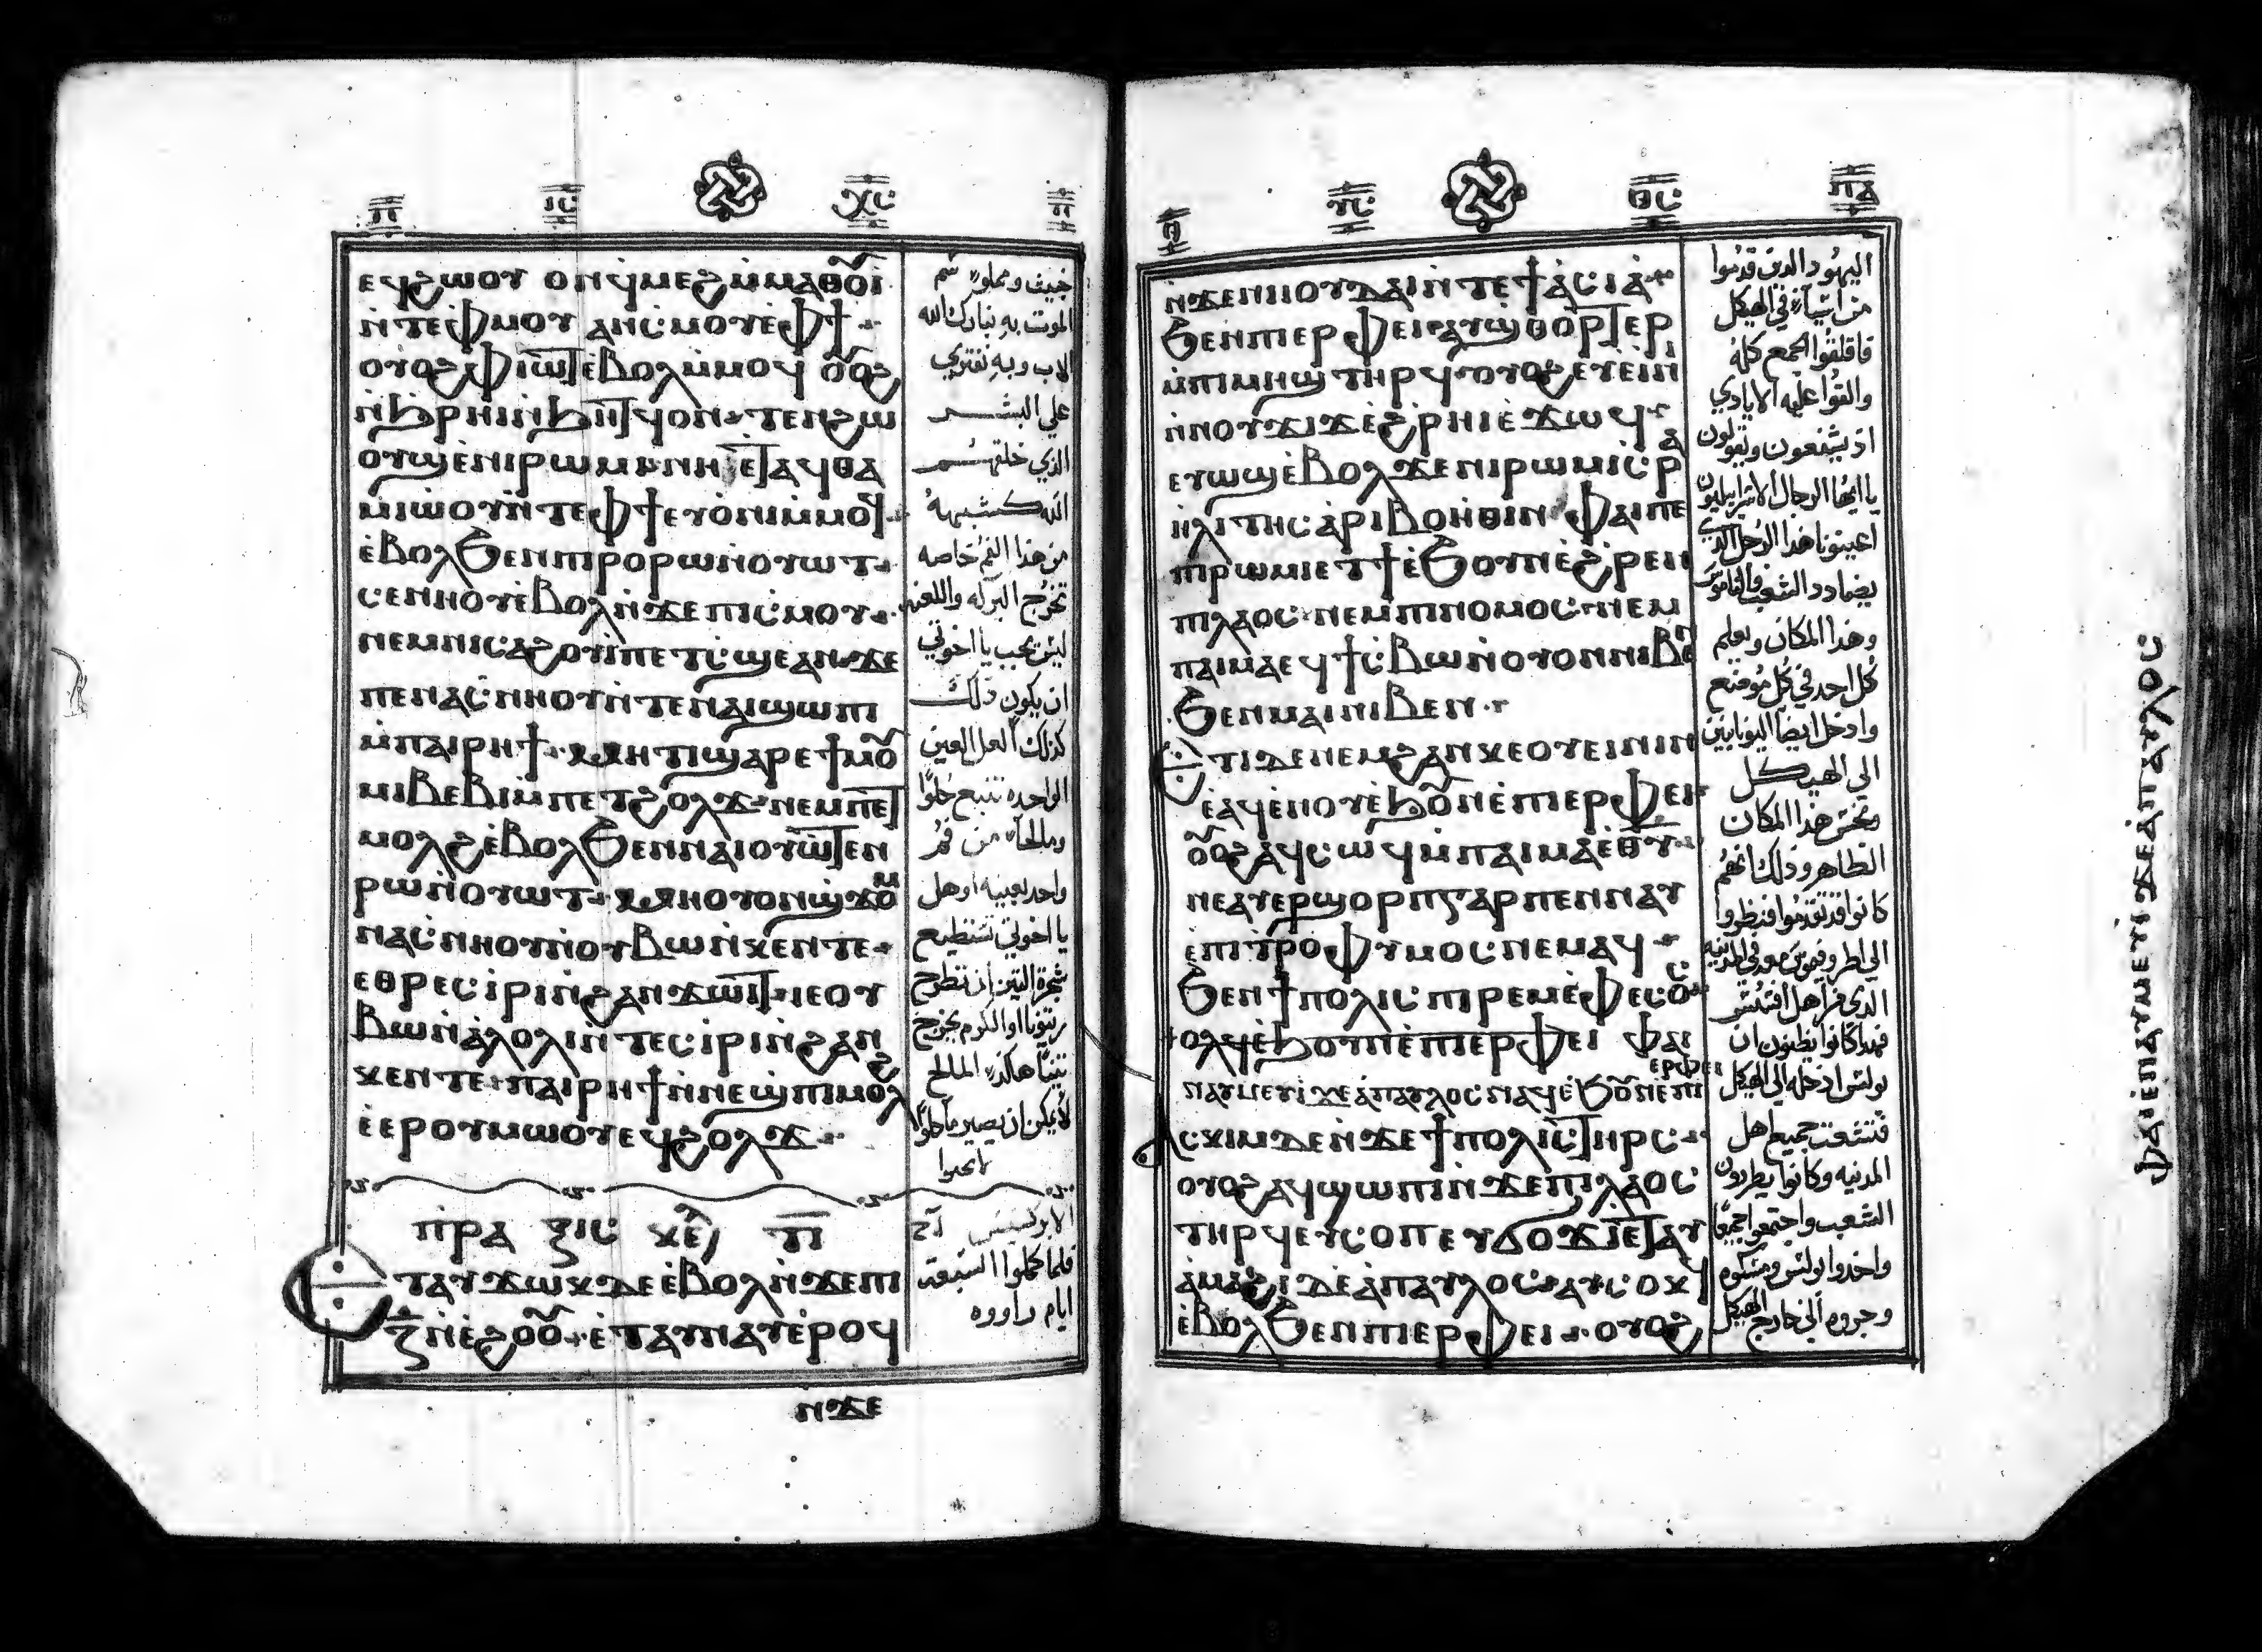 ⲡ̅ ⲓ̅ⲥ̅ ⲭ̅ⲥ̅ ⲡ̅
ⲉϥϩⲱⲟⲩ ⲟⲛ ϥⲙⲉϩ ⲙ̀ⲙⲁⲑⲟⲩⲓ
ⲛ̀ⲧⲉ ⲫ̀ⲙⲟⲩ ⲁⲛⲥ̀ⲙⲟⲩ ⲉ̀ⲫϯ
ⲟⲩⲟϩ ⲫ̀ⲓⲱⲧ ⲉ̀ⲃⲟⲗ ⲙ̀ⲙⲟϥ ⲟⲩⲟϩ
ⲛ̀ϧⲣⲏⲓ ⲛ̀ϧⲏⲧϥ ⲟⲛ ⲧⲉⲛϩⲱ
ⲟⲩϣ ⲉ̀ⲛⲓⲣⲱⲙⲓ ⲛⲏ ⲉⲧⲁϥⲑⲁ
ⲙⲓⲱ̀ⲟⲩ ⲛ̀ⲧⲉ ⲫϯ ⲉⲩⲟ̀ⲛⲓ ⲙ̀ⲙⲟϥ
ⲉ̀ⲃⲟⲗ ϧⲉⲛ ⲡⲓⲣⲟ ⲣⲱ ⲛ̀ⲟⲩⲱⲧ
ⲥⲉⲛⲛⲟⲩ ⲉ̀ⲃⲟⲗ ⲛ̀ϫⲉ ⲡⲓⲥ̀ⲙⲟⲩ
ⲛⲉⲙ ⲛⲓⲥⲁϩⲟⲩⲓ̀ ⲡⲉⲧⲥ̀ϣⲉ ⲁⲛ ϫⲉ
ⲡⲉⲛⲁⲥ̀ⲛⲏⲟⲩ ⲛ̀ⲧⲉ ⲛⲁⲓ ϣⲱⲡⲓ
ⲙ̀ⲡⲁⲓⲣⲏϯ ⲙⲏⲧⲓ ϣⲁⲣⲉ ϯⲙⲟⲩ
ⲙⲓ ⲃⲉⲃⲓ ⲙ̀ⲡⲉⲧϩⲟⲗϫ ⲛⲉⲙ ⲡⲉⲧ
ⲙⲟⲗϩ ⲉ̀ⲃⲟⲗ ϧⲉⲛ ⲛⲁⲓⲟⲩⲱⲧⲉⲛ
ⲣⲱ ⲛ̀ⲟⲩⲱⲧ ⲙⲏ ⲟⲩⲟⲛ ϣϫⲟⲙ
ⲛⲁⲥ̀ⲛⲏⲟⲩ ⲛ̀ⲟⲩⲃⲱ ⲛ̀ⲭⲉⲛⲧⲉ
ⲉⲑⲣⲉⲥⲓ̀ⲣⲓ ⲛ̀ϩⲁⲛϫⲱⲓⲧ ⲓⲉ ⲟⲩ
ⲃⲱ ⲛ̀ⲁ̀ⲗⲟⲗⲓ ⲛ̀ⲧⲉⲥⲓ̀ⲣⲓ ⲛ̀ϩⲁⲛ
ⲭⲉⲛⲧⲉ ⲡⲁⲓⲣⲏϯ ⲛ̀ⲛⲉϣ ⲡⲓⲙⲟⲗϩ
ⲉ̀ⲉⲣ ⲟⲩⲙⲱⲟⲩ ⲉϥϩⲟⲗϫ
ⲡⲣⲁⲝⲓⲥ ⲭⲉ ⲡ̅
ⲧⲁⲩϫⲱⲕ ⲇⲉ ⲉ̀ⲃⲟⲗ ⲛ̀ϫⲉ ⲡⲓ
ⲍ̅ ⲛ̀ⲉ̀ϩⲟⲟⲩ ⲉ̀ⲧⲁⲩⲛⲁⲩ ⲉ̀ⲣⲟϥ
ⲛ̀ϫⲉ
خبيث ومملوءه سم
الموت به نبارك الله
الاب وبه نفتري
علي البشر
الذي خلقهم
الله كشبهه
من هذا الفم خاصه
تخرج البركه واللعنه
ليس يجب يا اخوتي
ان يكون ذلك
كذلك ألعل العين
الواحده تنبع حلوا
ومالحاً من فم
واحد بعينيه اوهل
يا اخوتي تستطيع
شجرة التين ان تطرح
زيتونا او الكرم يخرج
تينا هكذا المالح
لا يمكن ان يصير ماً حلوا
الابركسيس
فلما كملوا السبعة
ايام راووه
ⲩ̅ⲥ̅ ⲑ̅ⲥ̅ ⲡ̅ⲁ̅
ⲛ̀ϫⲉ ⲛⲓⲓⲟⲩⲇⲁⲓ ⲛ̀ⲧⲉ ϯⲁ̀ⲥⲓⲁ̀
ϧⲉⲛ ⲡⲓⲉⲣⲫⲉⲓ ⲁⲩϣⲑⲟⲣⲧⲉⲣ
ⲙ̀ⲡⲓⲙⲏϣ ⲧⲏⲣϥ ⲟⲩⲟϩ ⲉⲩⲉ̀ⲓⲛⲓ
ⲛ̀ⲛⲟⲩϫⲓϫ ⲉ̀ϩⲣⲏⲓ ⲉ̀ϫⲱϥ
ⲉⲩⲱϣ ⲉ̀ⲃⲟⲗ ϫⲉ ⲛⲓⲣⲱⲙⲓ ⲥⲣⲁ
ⲏⲗⲓⲧⲏⲥ ⲁ̀ⲣⲓⲃⲟⲏ̀ⲑⲓⲛ ⲫⲁⲓ ⲡⲉ
ⲡⲓⲣⲱⲙⲓ ⲉⲧϯ ⲉ̀ϧⲟⲩⲛ ⲉ̀ϩⲣⲉⲛ
ⲡⲓⲗⲁⲟⲥ ⲛⲉⲙ ⲡⲓⲛⲟⲙⲟⲥ ⲛⲉⲙ
ⲡⲁⲓⲙⲁ ⲉϥϯⲥ̀ⲃⲱ ⲛ̀ⲟⲩⲟⲛ ⲛⲓⲃⲉⲛ
ϧⲉⲛ ⲙⲁⲓ ⲛⲓⲃⲉⲛ
ⲧⲓ ⲇⲉ ⲛⲉⲙ ϩⲁⲛⲕⲉⲟⲩⲉⲓⲛⲓⲛ
ⲉ̀ⲁϥⲉ̀ⲛⲟⲩ ⲉ̀ϧⲟⲩⲛ ⲉ̀ⲡⲓⲉⲣⲫⲉⲓ
ⲟⲩⲟϩ ⲁϥⲥⲱϥ ⲙ̀ⲡⲁⲓⲙⲁ ⲉ̀ⲑⲩ
ⲛⲉ ⲁⲩⲉⲣϣⲟⲣⲡ ⲅⲁⲣ ⲡⲉ ⲛ̀ⲛⲁⲩ
ⲉ̀ⲡⲓⲧⲣⲟⲫⲩⲙⲟⲥ ⲛⲉⲙⲁϥ
ϧⲉⲛ ϯⲡⲟⲗⲓⲥ ⲡⲓⲣⲉⲙⲉ̀ⲫⲉⲥⲟⲥ
ⲟⲗϥ ⲉ̀ϧⲟⲩⲛ ⲉ̀ⲡⲓⲉⲣⲫⲉⲓ ⲫⲁⲓ
ⲉⲣⲫⲉⲓ
ⲛⲁⲩⲙⲉⲩⲓ̀ ϫⲉ ⲁ̀ⲡⲁⲩⲗⲟⲥ ⲛⲁϥ ⲉ̀ϧⲟⲩⲛ ⲉ̀ⲡⲓ
ⲁⲥⲕⲓⲙ ⲇⲉ ⲛ̀ϫⲉ ϯⲡⲟⲗⲓⲥ ⲧⲏⲣⲥ
ⲟⲩⲟϩ ⲁϥϣⲱⲡⲓ ⲛ̀ϫⲉ ⲡⲓⲗⲁⲟⲥ
ⲧⲏⲣϥ ⲉⲩⲥⲟⲡ ⲉⲩϭⲟϫⲓ ⲉⲧⲁⲩ
ⲁ̀ⲙⲁϩⲓ ⲇⲉ ⲁ̀ⲡⲁⲩⲗⲟⲥ ⲁⲩⲥⲟⲕϥ
ⲉ̀ⲃⲟⲗ ϧⲉⲛ ⲡⲓⲉⲣⲫⲉⲓ ⲟⲩⲟϩ
اليهود الذين قدموا
من اسيا في الهيكل
فاقلقوا الجمع كله
والقوا عليه الايادي
اذ يشنعون ويقولون
يا ايها الرجال الاسراييليون
اعينونا هذا الرجل الذي
يضادد الشعب والناموس
وهذا المكان ويعلم
كل احد في كل موضع
وادخل ايضا اليونانيين
الي الهيكل
ونجس هذا المكان
الطاهر وذلك انهم
كانوا قد تقدموا فنظروا
الي اطروفيموس معه في المدينه
الذي من اهل افسس
فهذا كانوا يظنون ان
بولس ادخله الي الهيكل
فتشعت جميع اهل
المدنيه وكانوا يطردون
الشعب واجتمعوا جميعا
واخذوا بولس ومسكوه
وجروه الي خارج الهيكل
ⲫⲁⲓ ⲉ̀ⲛⲁⲩⲙⲉⲩⲓ̀ ϫⲉ ⲁ̀ⲡⲁⲩⲗⲟⲥ